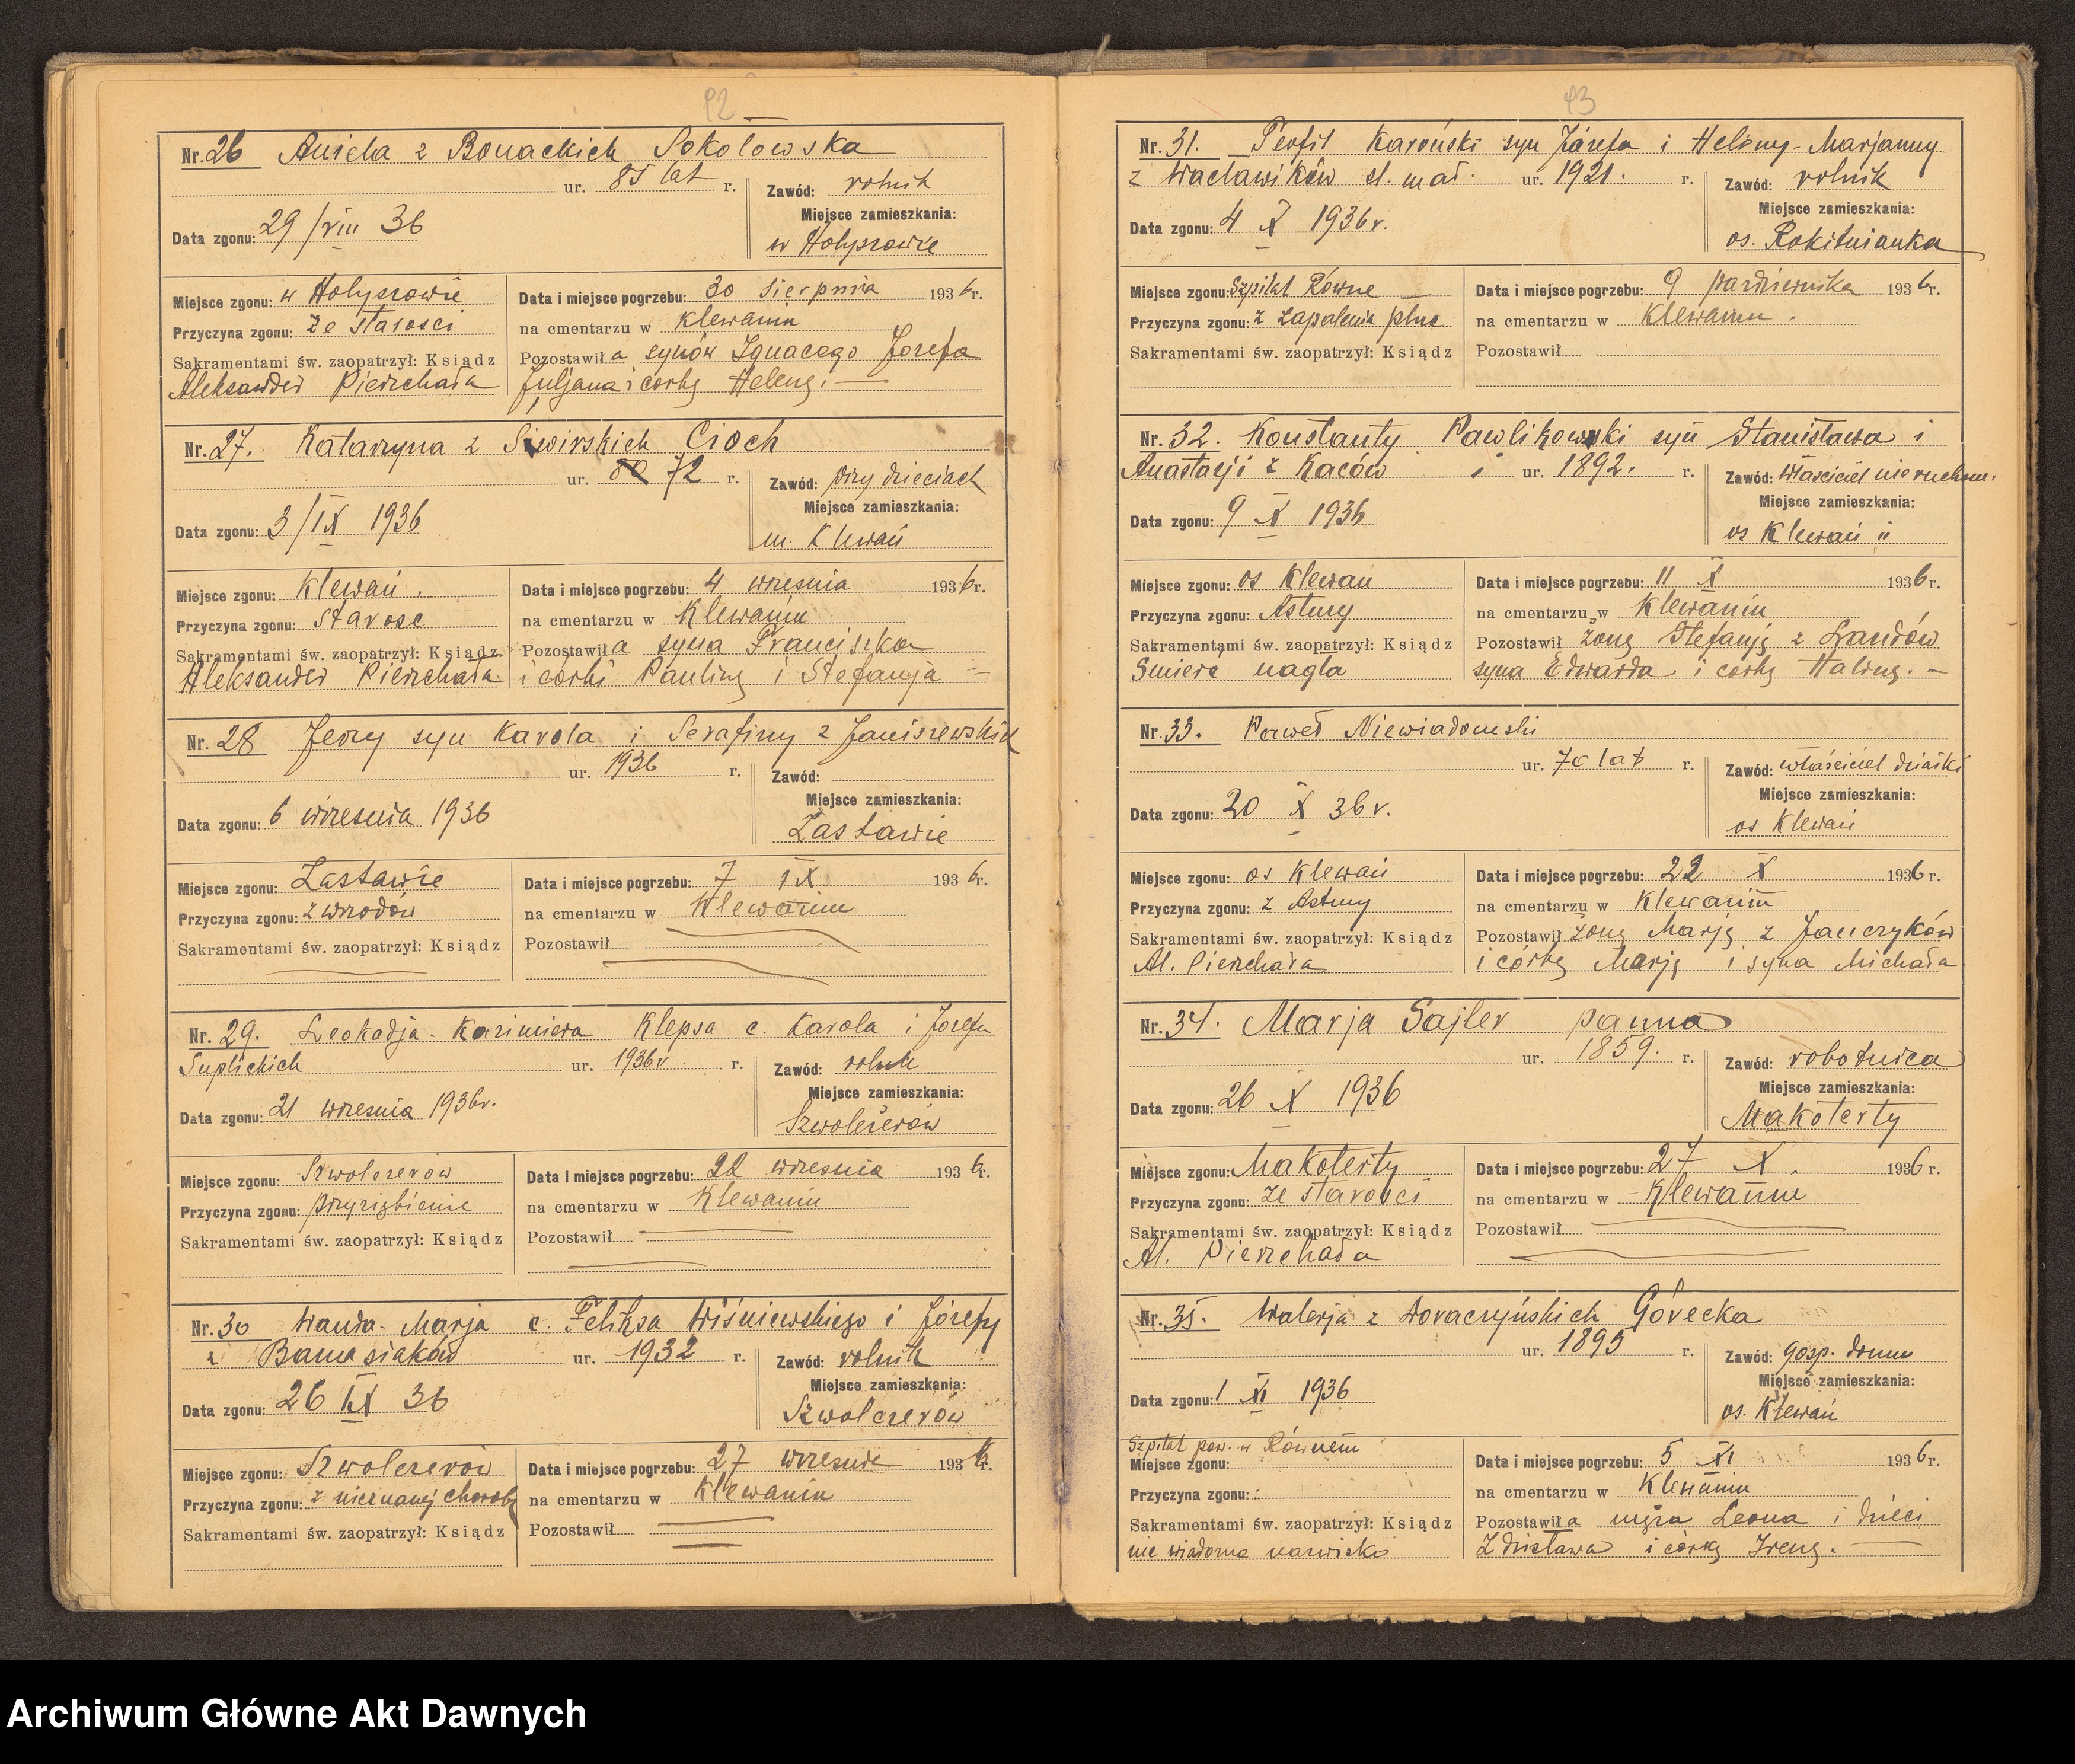 92
Nr. 26 Aniela z Bonackich Sokołowska
ur. 85 lat r. Zawód: rolnik
Miejsce zamieszkania:
Data zgonu: 29/VIII 36 w Hołyszowie
Miejsce zgonu: w Hołyszowie Data i miejsce pogrzebu: 30 sierpnia 1936 r.
Przyczyna zgonu: ze starosci na cmentarzu w Klewaniu
Sakramentami św. zaopatrzył: Ksiądz Pozostawiła synów Ignacego Józefa
Aleksander Pierzchała Juljana i córkę Helenę.
Nr. 27. Katarzyna z Siwirskich Cioch
ur. 80 72 r. Zawód: przy dzieciach
Miejsce zamieszkania:
Data zgonu: 3/IX 1936 m. Klewań
Miejsce zgonu: Klewań. Data i miejsce pogrzebu: 4 wresnia 1936 r.
Przyczyna zgonu: Starosc na cmentarzu w Klewaniu
Sakramentami św. zaopatrzył: Ksiądz Pozostawiła syna Franciszka
Aleksander Pierzchała i córki Pauling i Stefanja
Nr. 28 Jerzy syn Karola i Serafiny z Janiszewskich
ur. 1936 r. Zawód:
Miejsce zamieszkania:
Data zgonu: 6 wrzesnia 1936 Zastawie
Miejsce zgonu: Zastawie Data i miejsce pogrzebu: 7 IX 1936 r.
Przyczyna zgonu: z wrzodów na cmentarzu w Klewaniu
Sakramentami św. zaopatrzył: Ksiądz Pozostawił
Nr. 29. Leokadja-Kazimiera Klepsa c. Karola i Józefa
Suplickich ur. 1936 r r. Zawód: rolnik
Miejsce zamieszkania:
Data zgonu: 21 wrzesnia 1936 r. Szwoleżerów
Miejsce zgonu: Szwolezerów Data i miejsce pogrzebu: 22 wrzesnia 1936 r.
Przyczyna zgonu: przyziębienie na cmentarzu w Klewaniu
Sakramentami św. zaopatrzył: Ksiądz Pozostawił
Nr. 30 Wanda-Marja c. Feliksa Wiśniewskiego i Józefy
z Banasiaków ur. 1932 r. Zawód: rolnik
Miejsce zamieszkania:
Data zgonu: 26 IX 36 Szwolezerów
Miejsce zgonu: Szwolezerów Data i miejsce pogrzebu: 27 wrzesnie 1936 r.
Przyczyna zgonu: z nieznanej choroby na cmentarzu w Klewaniu
Sakramentami św. zaopatrzył: Ksiądz Pozostawił
93
Nr. 31. Teofil Karoński syn Józefa i Heleny-Marjanny
z Wacławików sł. mał. ur. 1921. r. Zawód: rolnik
Miejsce zamieszkania:
Data zgonu: 4 X 1936 r. os. Rokitnianka
Miejsce zgonu: Szpital Równe Data i miejsce pogrzebu: 9 pazdziernika 1936 r.
Przyczyna zgonu: z zapalenia płuc na cmentarzu w Klewaniu.
Sakramentami św. zaopatrzył: Ksiądz Pozostawił
Nr. 32. Konstanty Pawlikowski syn Stanisława i
Anastazji z Kaców ur. 1892. r. Zawód: Właściciel nieruchom.
Miejsce zamieszkania:
Data zgonu: 9 X 1936 os Klewań II
Miejsce zgonu: os Klewań Data i miejsce pogrzebu: 11 X 1936 r.
Przyczyna zgonu: Astmy na cmentarzu w Klewaniu
Sakramentami św. zaopatrzył: Ksiądz Pozostawił żonę Stefanję z
Smierc nagła syna Edwarda i corkę Halinę.
Nr. 33. Paweł Niewiadomski
ur. 70 lat r. Zawód: właściciel działki
Miejsce zamieszkania:
Data zgonu: 20 X 36 r. os Klewań
Miejsce zgonu: os Klewań Data i miejsce pogrzebu: 22 X 1936 r.
Przyczyna zgonu: z Astmy na cmentarzu w Klewaniu
Sakramentami św. zaopatrzył: Ksiądz Pozostawił żonę Marję z Janczyków
Al. Pierzchała i córkę Marję i syna Michała
Nr. 34. Marja Sajler panna
ur. 1859. r. Zawód: robotnica
Miejsce zamieszkania:
Data zgonu: 26 X 1936 Makoterty
Miejsce zgonu: Makoterty Data i miejsce pogrzebu: 27 X. 1936 r.
Przyczyna zgonu: ze starosci na cmentarzu w Klewaniu
Sakramentami św. zaopatrzył: Ksiądz Pozostawił
Al. Pierzchała
Nr. 35. Walerja z Górecka
ur. 1895 r. Zawód: gosp. domu
Miejsce zamieszkania:
Data zgonu: 1 XI 1936 os. Klewań
Szpital pow. w Równem
Miejsce zgonu: Data i miejsce pogrzebu: 5 XI 1936 r.
Przyczyna zgonu: na cmentarzu w Klewaniu
Sakramentami św. zaopatrzył: Ksiądz Pozostawiła męża Leona i dzieci
nie wiadome nazwisko Zdzisława i córkę Irenę.
Archiwum Główne Akt Dawnych